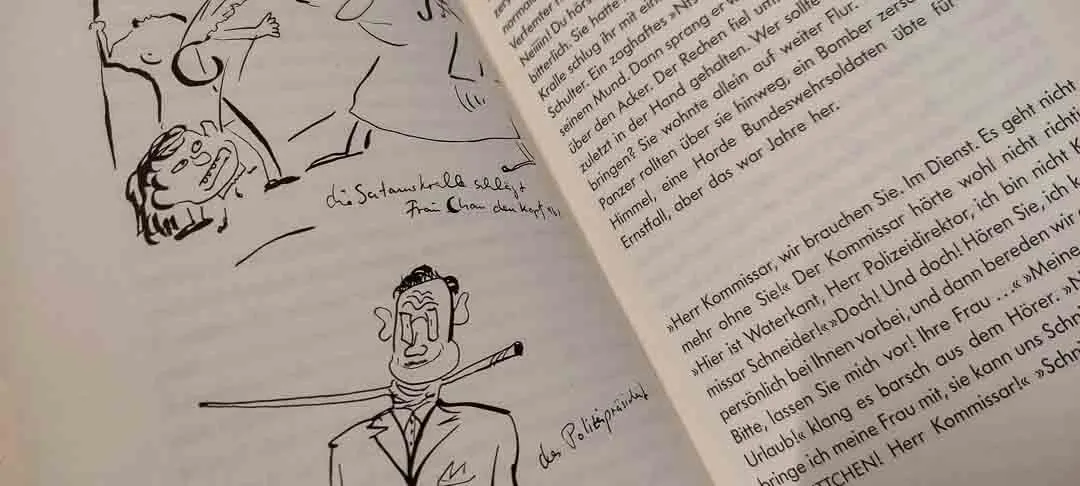 die Satanskralle schlägt
Frau Chan den Kopf
der Polizeipräsident
normale
Verfemter
Neiiin! Du hörs
bitterlich. Sie hatte
Kralle schlug ihr mit ein
Schulter. Ein zaghaftes »Nts
seinem Mund. Dann sprang er
über den Acker. Der Rechen fiel um
zuletzt in der Hand gehalten. Wer sollte
bringen? Sie wohnte allein auf weiter Flur.
Panzer rollten über sie hinweg, ein Bomber zersc
Himmel, eine Horde Bundeswehrsoldaten übte für
Ernstfall, aber das war Jahre her.
»Herr Kommissar, wir brauchen Sie. Im Dienst. Es geht nicht
mehr ohne Sie!« Der Kommissar hörte wohl nicht richtig
»Hier ist Waterkant, Herr Polizeidirektor, ich bin nicht K
missar Schneider!« »Doch! Und doch! Hören Sie, ich k
persönlich bei Ihnen vorbei, und dann bereden wir
Bitte, lassen Sie mich vor! Ihre Frau ...« »Meine
Urlaub!« klang es barsch aus dem Hörer. »N
bringe ich meine Frau mit, sie kann uns Schni
TTCHEN! Herr Kommissar!« »Schn